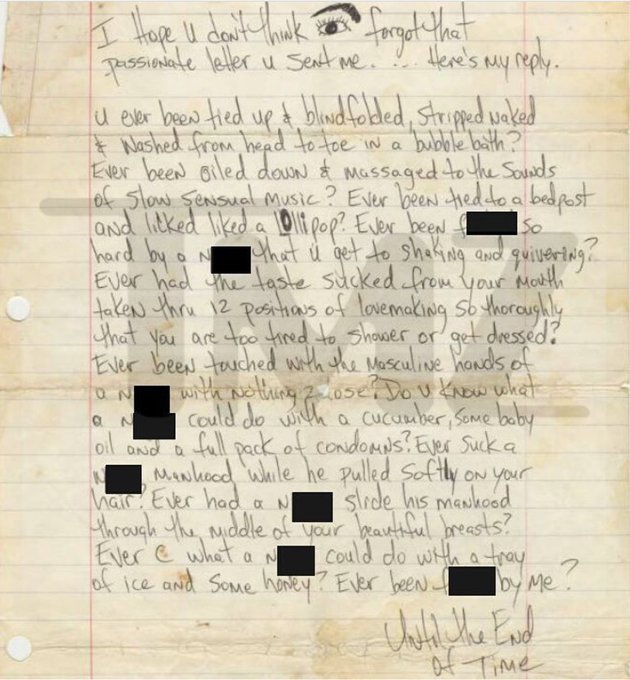 I Hope U don't think forgot that
passionate letter u sent me. ... Here's my reply.
U ever been tied up & blindfolded, stripped naked
& washed from head to toe in a bubble bath?
Ever been oiled down & massaged to the sounds
of slow sensual music? Ever been tied to a bedpost
and licked liked a lollipop? Ever been f so
hard by a N that u get to shaking and quivering?
Ever had the taste sucked from your mouth
taken thru 12 positions of lovemaking so thoroughly
that you are too tired to shower or get dressed?
Ever been touched with the masculine hands of
a N with nothing 2 lose? Do u know what
a N could do with a cucumber, some baby
oil and a full pack of condomns? Ever suck a
N manhood while he pulled softly on your
hair? Ever had a N slide his manhood
through the middle of your beautiful breasts?
Ever C what a N could do with a tray
of ice and some honey? Ever been f by me?
Until the End
of Time
TMZ